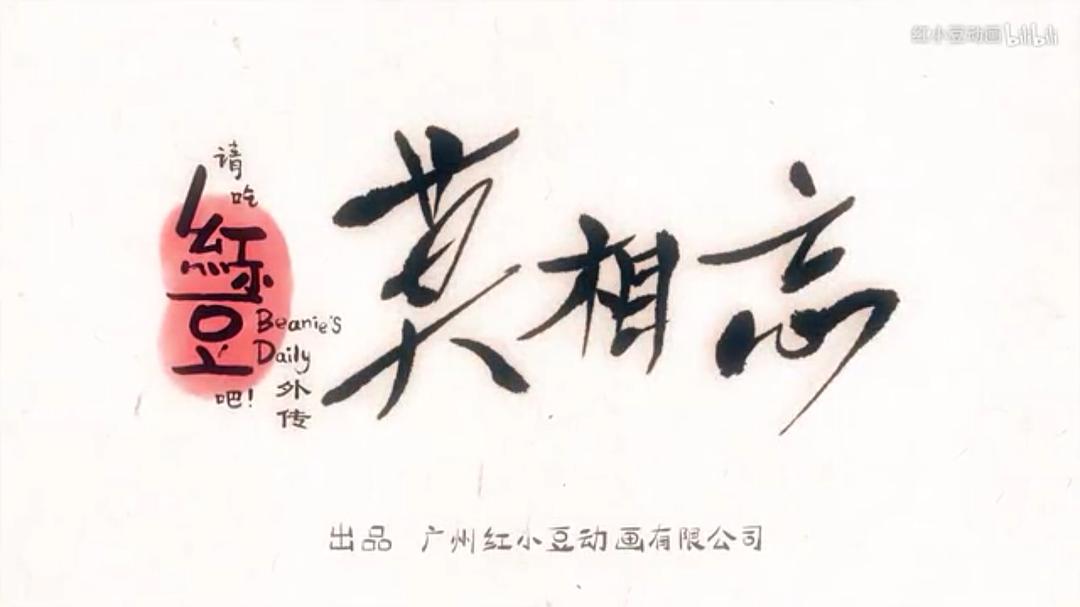 红小豆动画 bilibili
请吃
紅豆
吧!
Beanie's
Daily
外传
莫相忘
出品 广州红小豆动画有限公司